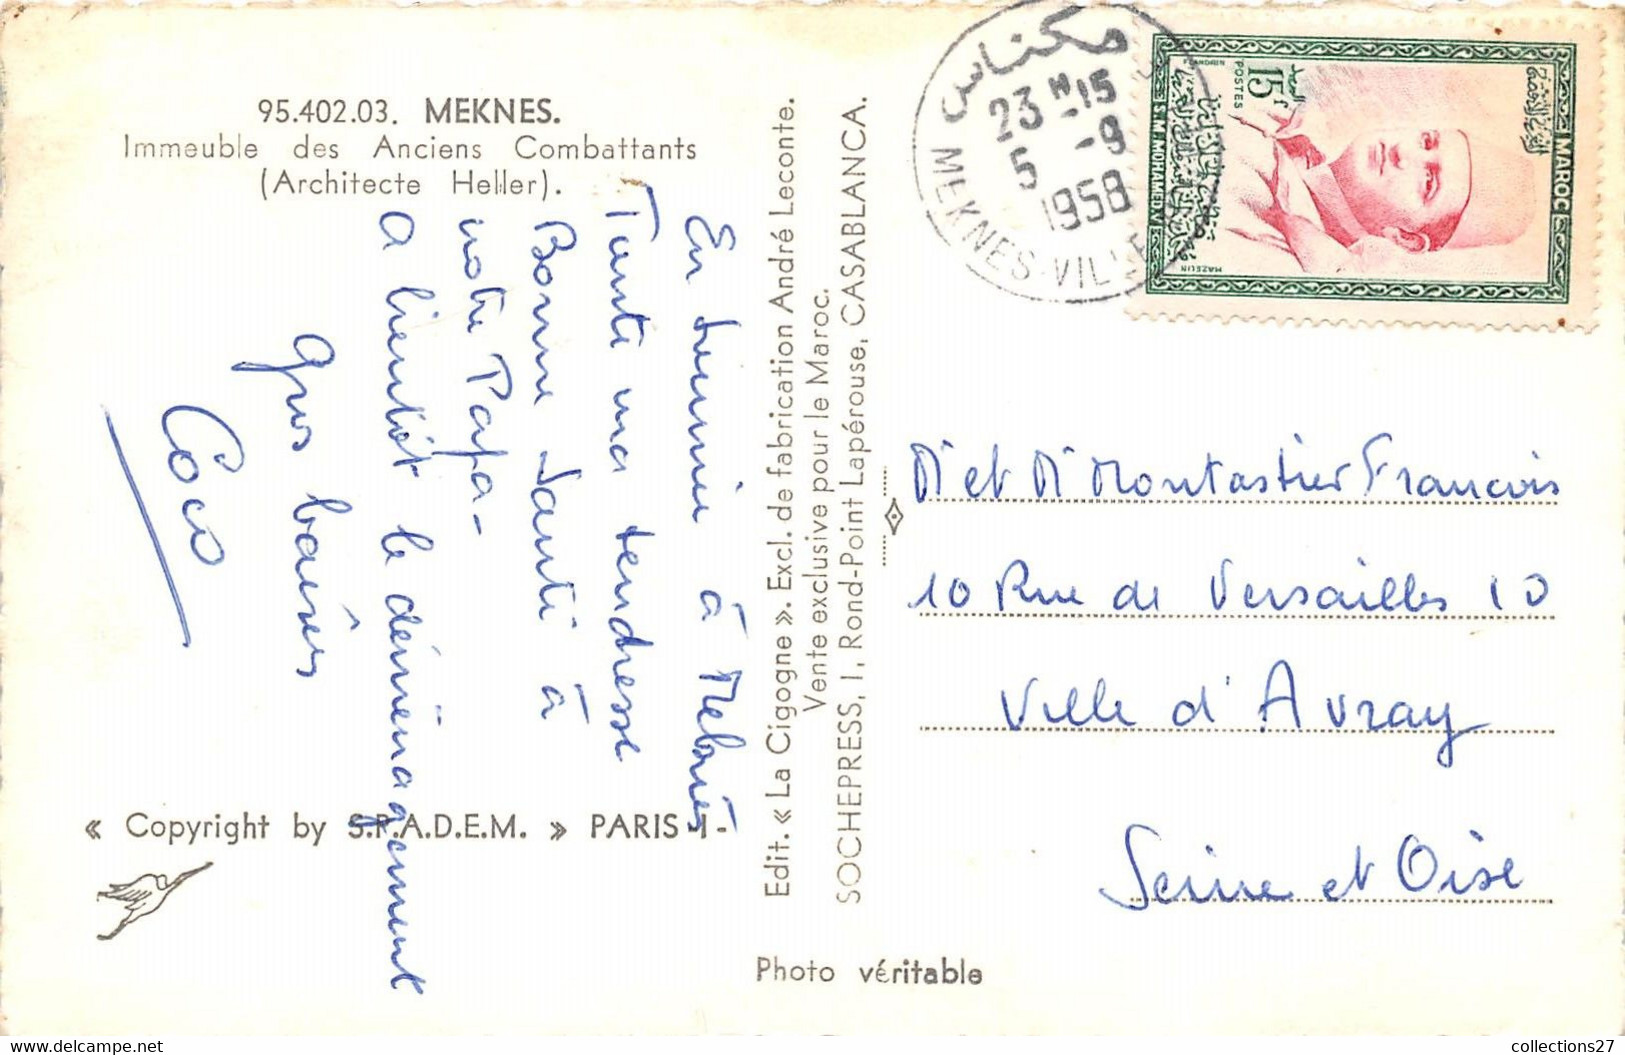 95.402.03. MEKNES.
Immeuble des Anciens Combattants
(Architecte Heller).
En tournée à Meknès
Toute ma tendresse
Bonne Santé à
notre Papa-
A bientôt le déménagement
Gros baisers
Coco
« Copyright by S.P.A.D.E.M. » PARIS -1-
Edit. « La Cigogne ». Excl. de fabrication André Leconte.
Vente exclusive pour le Maroc.
SOCHEPRESS, 1, Rond-Point Lapérouse, CASABLANCA.
Photo véritable
مكناس
23 H -15
5 -9
1958
MEKNES-VILLE
MAROC
S.M. MOHAMED V
POSTES
15F
MAZELIN
المغرب
M et M Montastier Francois
10 Rue de Versailles 10
Ville d'Avray
Seine et Oise
collections27
www.delcampe.net